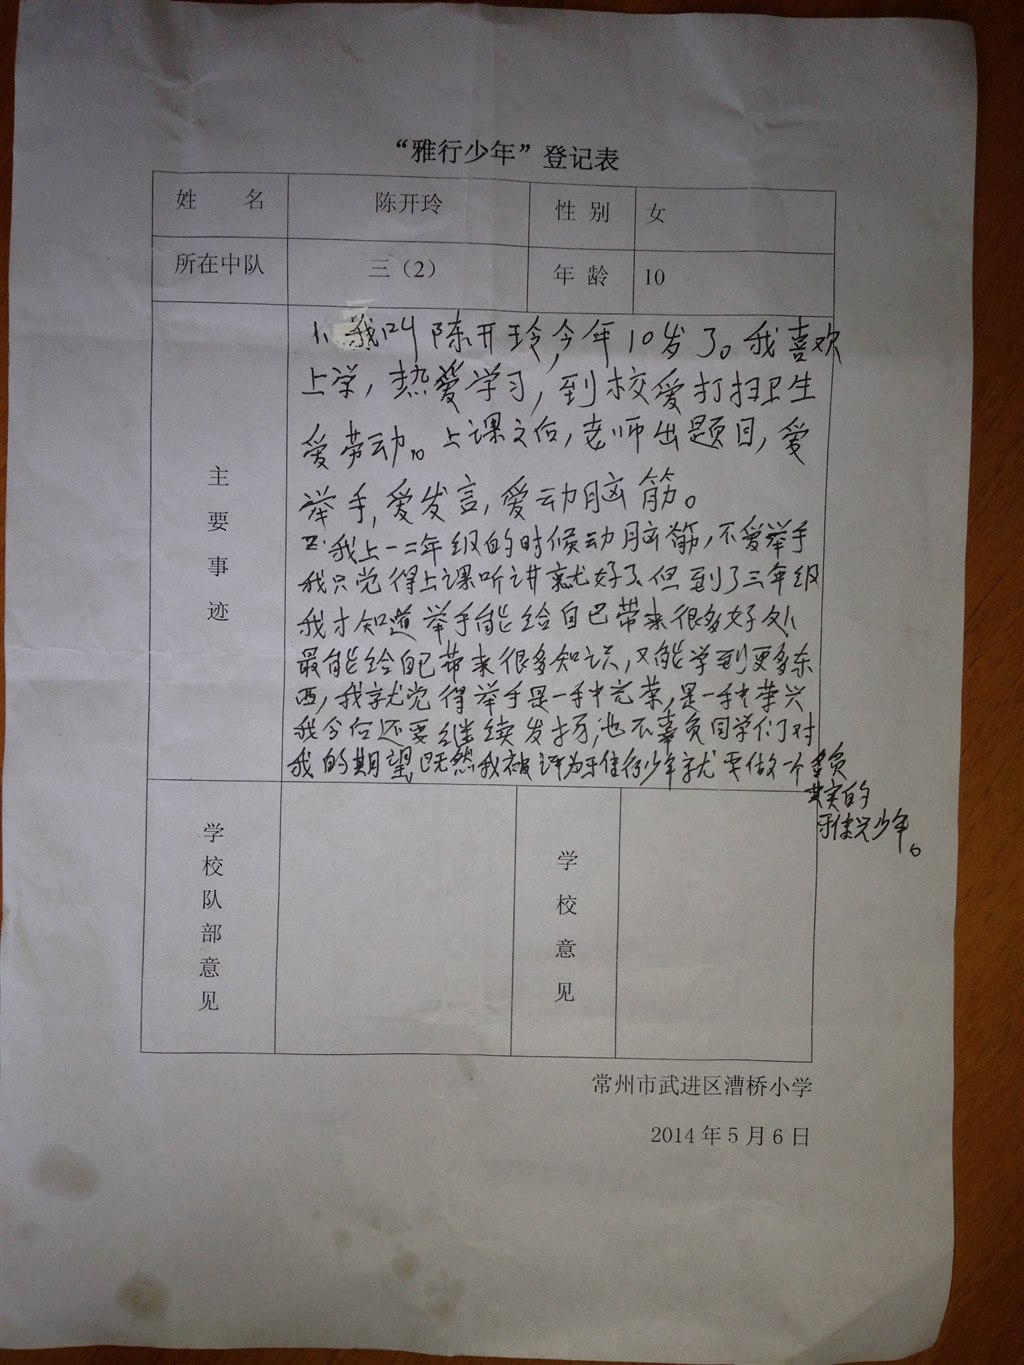 “雅行少年”登记表
姓 名 陈开玲 性 别 女
所在中队 三（2） 年 龄 10
主要事迹
1、我叫陈开玲，今年10岁了。我喜欢
上学，热爱学习，到校爱打扫卫生
爱劳动。上课文后，老师出题目，爱
举手，爱发言，爱动脑筋。
2、我上一二年级的时候动脑筋，不爱举手
我只觉得上课听讲就好了、但到了三年级
我才知道举手能给自已带来很多好处、
最能给自已带来很多知识，又能学到更多东
西，我就觉得举手是一种光荣，是一种荣兴
我今后还要继续发扬，也不辜负同学们对
我的期望，既然我被评为雅行少年就要做一个
其实的
少年。
学校队部意见
学校意见
常州市武进区漕桥小学
2014年5月6日